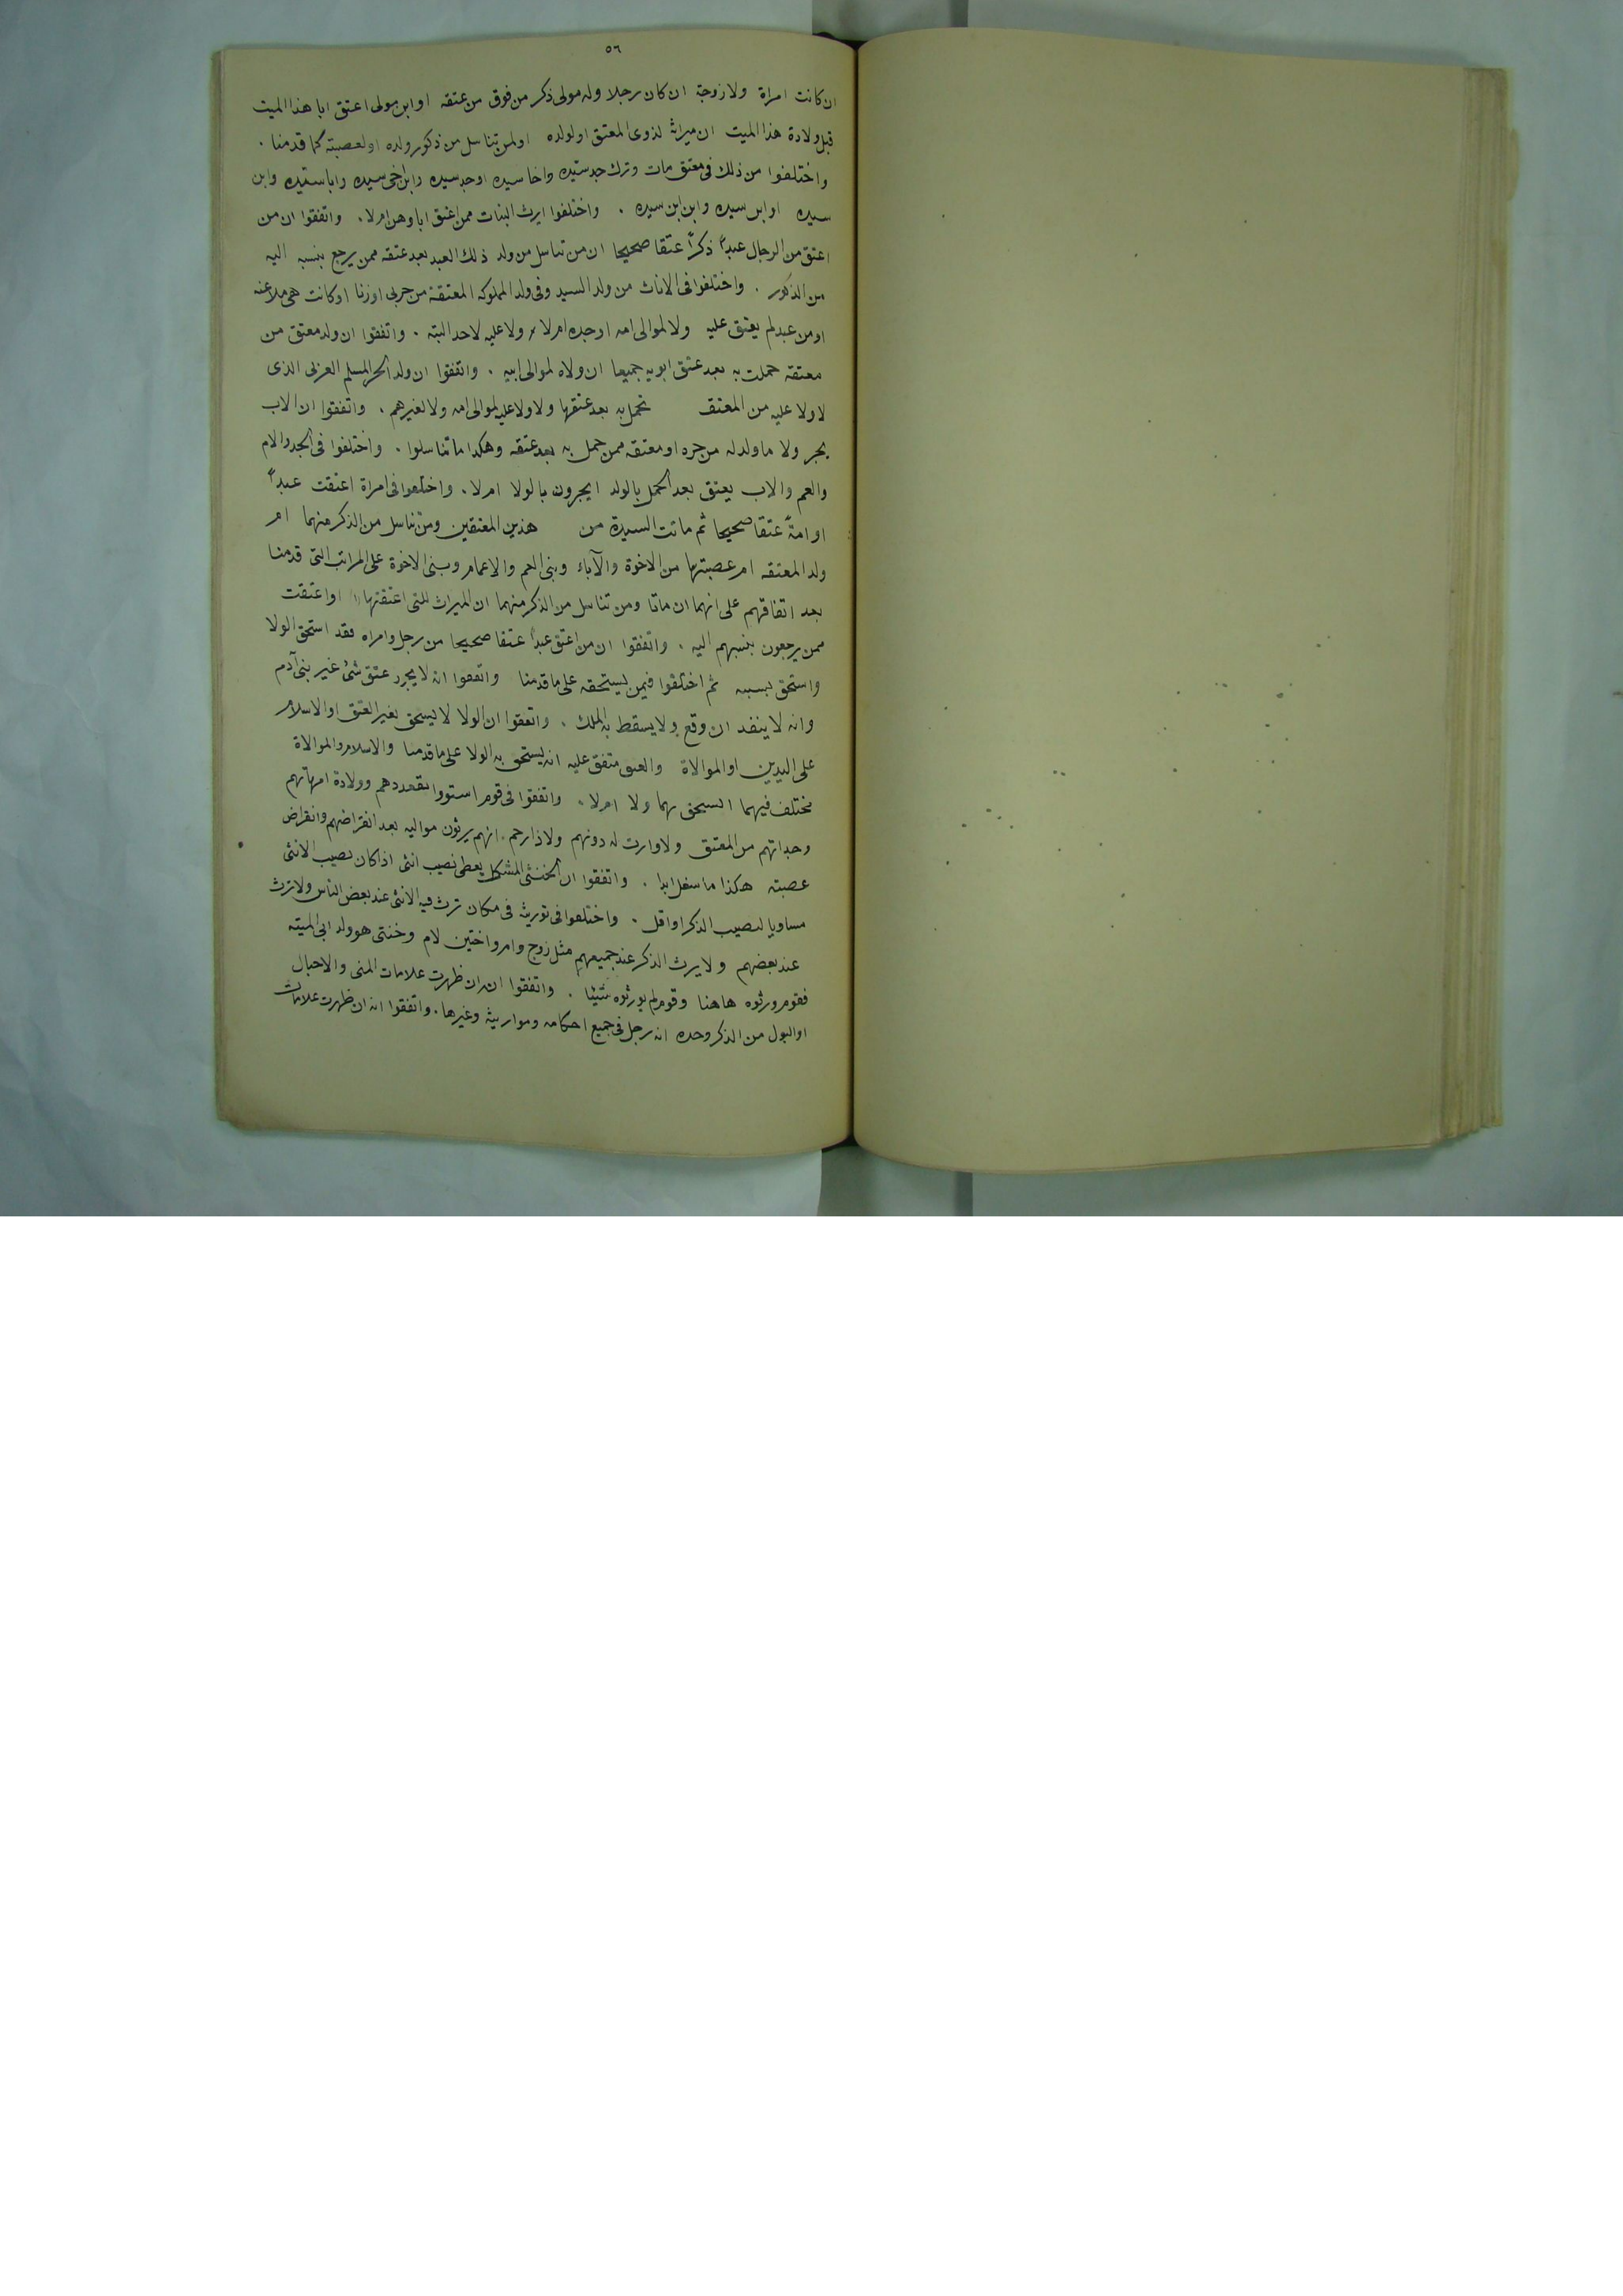 ٥٦
ان كانت امراة ولا زوجة ان كان رجلا وله مولى ذكر من فوق من عتقه او ابن مولى اعتق ابا هذا الميت
قبل ولادة هذا الميت ان ميراثه لذوى المعتق او لولده او لمن تناسل من ذكور ولده او لعصبته كما قدمنا .
واختلفوا من ذلك فى معتق مات وترك جد سيده واخا سيده او جد سيده وابن اخى سيده وابا سيده وابن
سيده او ابن سيده وابن ابن سيده . واختلفوا ايرث البنات ممن اعتق اباوهن ام لا . واتفقوا ان من
اعتق من الرجال عبداً ذكراً عتقا صحيحا ان من تناسل من ولد ذلك العبد بعد عتقه ممن يرجع بنسبه اليه
من الذكور . واختلفوا فى الاناث من ولد السيد وفى ولد المملوكه المعتقة من حربى او زنا او كانت هى ملاعنه
او من عبد لم يعتق عليه ولا لموالى امه او جده ام لا ولا عليه لاحد البته . واتفقوا ان ولد معتق من
معتقه حملت به بعد عتق ابويه جميعا ان ولاه لموالى ابيه . واتفقوا ان ولد الحر المسلم العربى الذى
لا ولا عليه من المعتقه تحمل به بعد عتقها ولا ولا عليه لموالى امه ولا لغيرهم . واتفقوا ان الاب
يجر ولا ما ولد له من حره او معتقه ممن حمل به بعد عتقه وهكذا ما تناسلوا . واختلفوا فى الجد والام
والعم والاب يعتق بعد الحمل بالولد ايجرون بالولا ام لا . واختلفوا فى امراة اعتقت عبداً
او امةً عتقا صحيحا ثم ماتت السيدة من هذين المعتقين ومن تناسل من الذكر منهما ام
ولد المعتقه ام عصبتها من الاخوة والآباء وبنى العم والاعمام وبنى الاخوة على المراتب التى قدمنا
بعد اتفاقهم على انهما ان ماتا ومن تناسل من الذكر منهما ان الميراث للتى اعتقتها او اعتقت
ممن يرجعون بنسبهم اليه . واتفقوا ان من اعتق عبداً عتقا صحيحا من رجل وامراه فقد استحق الولا
واستحق بسببه ثم اختلفوا فيمن يستحقه على ما قدمنا واتفقوا انه لا يجرد عتق شئ غير بنى آدم
وانه لا ينفد ان وقع ولا يسقط به الملك . واتفقوا ان الولا لا يستحق بغير العتق او الاسلام
على اليدين او الموالاة والعتق متفق عليه انه يستحق به الولا على ما قدمنا والاسلام والموالاة
مختلف فيهما ايستحق بهما ولا ام لا . واتفقوا فى قوم استووا بقعددهم وولادة امهاتهم
وجداتهم من المعتق ولا وارث له دونهم ولا ذا رحم انهم يرثون مواليه بعد انقراضهم وانقراض
عصبته هكذا ما سفل ابدا . واتفقوا ان الخنثى المشكل يعطى نصيب انثى اذا كان نصيب الانثى
مساويا لنصيب الذكر او اقل . واختلفوا فى توريثه فى مكان ترث فيه الانثى عند بعض الناس ولا ترث
عند بعضهم ولا يرث الذكر عند جميعهم مثل زوج وام واختين لام وخنثى هو ولد ابى الميته
فقوم ورثوه هاهنا وقوم لم يورثوه شيئا . واتفقوا انه ان ظهرت علامات المنى والاحبال
او البول من الذكر وحده انه رجل فى جميع احكامه ومواريثه وغيرها . واتفقوا انه ان ظهرت علامات